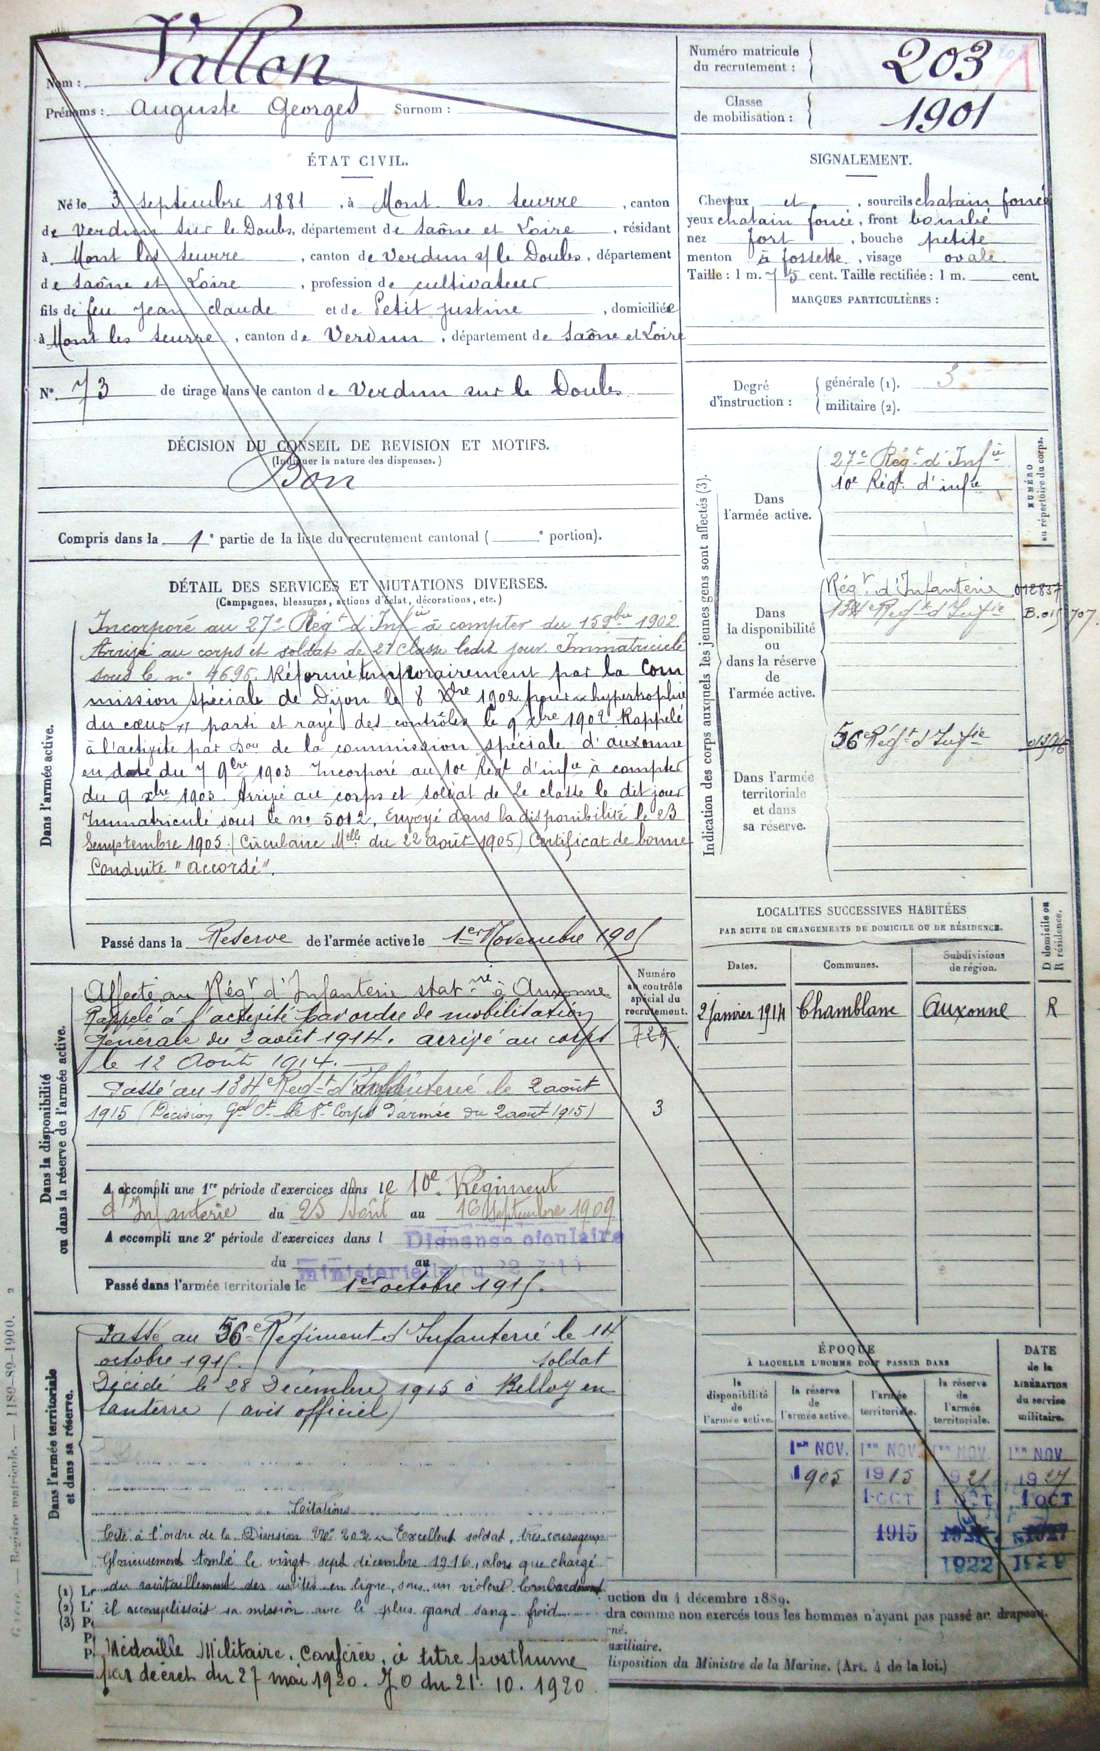 Nom : Vallon
Prénoms : Auguste Georges Surnom :
Numéro matricule du recrutement : 203
Classe de mobilisation : 1901
ÉTAT CIVIL.
Né le 3 septembre 1881, à Mont les Seurre, canton
de Verdun sur le Doubs, département de Saône et Loire, résidant
à Mont les Seurre, canton de Verdun s/ le Doubs, département
de Saône et Loire, profession de cultivateur
fils de feu Jean Claude et de Petit Justine, domiciliée
à Mont les Seurre, canton de Verdun, département de Saône et Loire
N° 73 de tirage dans le canton de Verdun sur le Doubs
SIGNALEMENT.
Cheveux et, sourcils chatain foncé
yeux chatain foncé, front bombé
nez fort, bouche petite
menton à fossette, visage ovale
Taille : 1 m. 75 cent. Taille rectifiée : 1 m. cent.
MARQUES PARTICULIÈRES :
Degré d'instruction : générale (1). 3
militaire (2).
DÉCISION DU CONSEIL DE REVISION ET MOTIFS.
(Indiquer la nature des dispenses.)
Bon
Compris dans la 1e partie de la liste du recrutement cantonal ( e portion).
DÉTAIL DES SERVICES ET MUTATIONS DIVERSES.
(Campagnes, blessures, actions d'éclat, décorations, etc.)
Dans l'armée active.
Incorporé au 27e Régt d'Infie à compter du 15 9bre 1902
Arrivé au corps et soldat de 2e classe ledit jour. Immatriculé
sous le n° 4696. Réformé temporairement par la Com
mission spéciale de Dijon le 8 Xbre 1902 pour "hypertrophie
du cœur" parti et rayé des contrôles le 9 Xbre 1902. Rappelé
à l'activité par Don de la commission spéciale d'auxonne
en date du 7 9bre 1903 Incorporé au 10e Régt d'infie à compter
du 9 xbre 1903 Arrivé au corps et soldat de 2e classe le dit jour
Immatriculé sous le no 5012, Envoyé dans la disponibilité le 23
Semptembre 1905. (Circulaire Mlle du 22 août 1905) Certificat de bonne
Conduite "accordé".
Passé dans la Réserve de l'armée active le 1er Novembre 1905
Indication des corps auxquels les jeunes gens sont affectés (3).
NUMÉRO au répertoire du corps.
Dans l'armée active.
27e Régt d'Infie
10e Régt d'infie
Dans la disponibilité ou dans la réserve de l'armée active.
Régt d'Infanterie 012857
134e Régt d'Infie B.015707.
Dans l'armée territoriale et dans sa réserve.
56e Régt d'Infie
LOCALITES SUCCESSIVES HABITÉES
PAR SUITE DE CHANGEMENTS DE DOMICILE OU DE RÉSIDENCE.
Dates. Communes. Subdivisions de région. D domicile ou R résidence.
2 janvier 1914 Chamblanc Auxonne R
Dans la disponibilité ou dans la réserve de l'armée active.
Numéro au contrôle spécial du recrutement.
729
3
Affecté au Régt d'Infanterie statre à Auxonne
Rappelé à l'activité par ordre de mobilisation
générale du 2 août 1914. arrivé au corps
le 12 Août 1914.
Passé au 134e Régt d'Infanterie le 2 août
1915 (Décision Gal Ct le 8e Corps d'armée du 2 août 1915)
A accompli une 1re période d'exercices dans le 10e Régiment
d'Infanterie du 25 Août au 16 septembre 1909
A accompli une 2e période d'exercices dans l Dispense
du au
Passé dans l'armée territoriale le 1er octobre 1915.
Dans l'armée territoriale et dans sa réserve.
Passé au 56e Régiment d'Infanterie le 14
octobre 1915. soldat
Décédé le 28 Décembre 1915 à Belloy en
Santerre (avis officiel)
Citations
Cité à l'ordre de la Division N° 202 "Excellent soldat, très courageux
Glorieusement tombé le vingt sept décembre 1916, alors que chargé
du ravitaillement des unités en ligne, sous un violent bombardement
il accomplissait sa mission avec le plus grand sang froid
Médaille Militaire. Conférée à titre posthume
par décret du 27 mai 1920. JO du 21. 10. 1920
ÉPOQUE
À LAQUELLE L'HOMME DOIT PASSER DANS
la disponibilité de l'armée active.
la réserve de l'armée active.
l'armée territoriale.
la réserve de l'armée territoriale.
DATE de la LIBÉRATION du service militaire.
1er NOV. 1er NOV. 1er NOV. 1er NOV
1905 1915 1921 1927
1 OCT 1 OCT 1 OCT
1915
1922
(1)
(2)
(3)
uction du 4 décembre 1889.
dra comme non exercés tous les hommes n'ayant pas passé au drapeau.
uxiliaire.
disposition du Ministre de la Marine. (Art. 4 de la loi.)
Registre matricule. — 1189-89-1900.